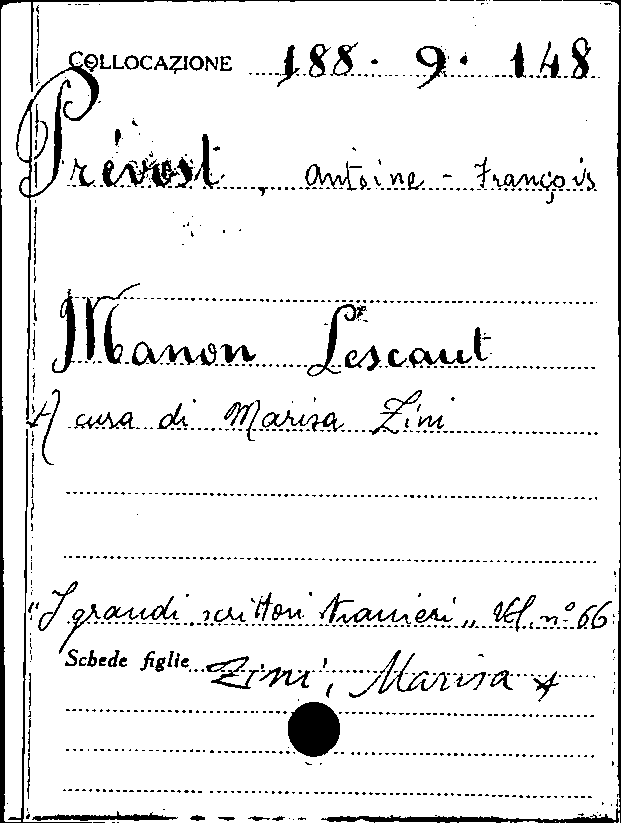 COLLOCAZIONE 188. 9. 148
Prévost, Antoine-François
Manon Lescaut
A cura di Marisa Zini
"I grandi scrittori stranieri" Vol. n° 66
Schede figlie Zini, Marisa